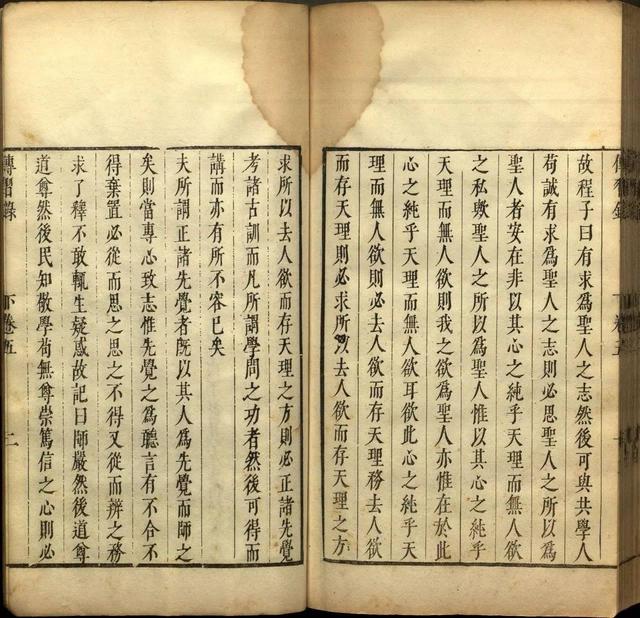 傳習錄
下卷五
故程子曰有求為聖人之志然後可與共學人
苟誠有求為聖人之志則必思聖人之所以為
聖人者安在非以其心之純乎天理而無人欲
之私歟聖人之所以為聖人惟以其心之純乎
天理而無人欲則我之欲為聖人亦惟在於此
心之純乎天理而無人欲耳欲此心之純乎天
理而無人欲則必去人欲而存天理務去人欲
而存天理則必求所以去人欲而存天理之方
求所以去人欲而存天理之方則必正諸先覺
考諸古訓而凡所謂學問之功者然後可得而
講而亦有所不容已矣
夫所謂正諸先覺者既以其人為先覺而師之
矣則當專心致志惟先覺之為聽言有不合不
得棄置必從而思之思之不得又從而辨之務
求了釋不敢輒生疑惑故記曰師嚴然後道尊
道尊然後民知敬學苟無尊崇篤信之心則必
傳習錄
下卷五
二